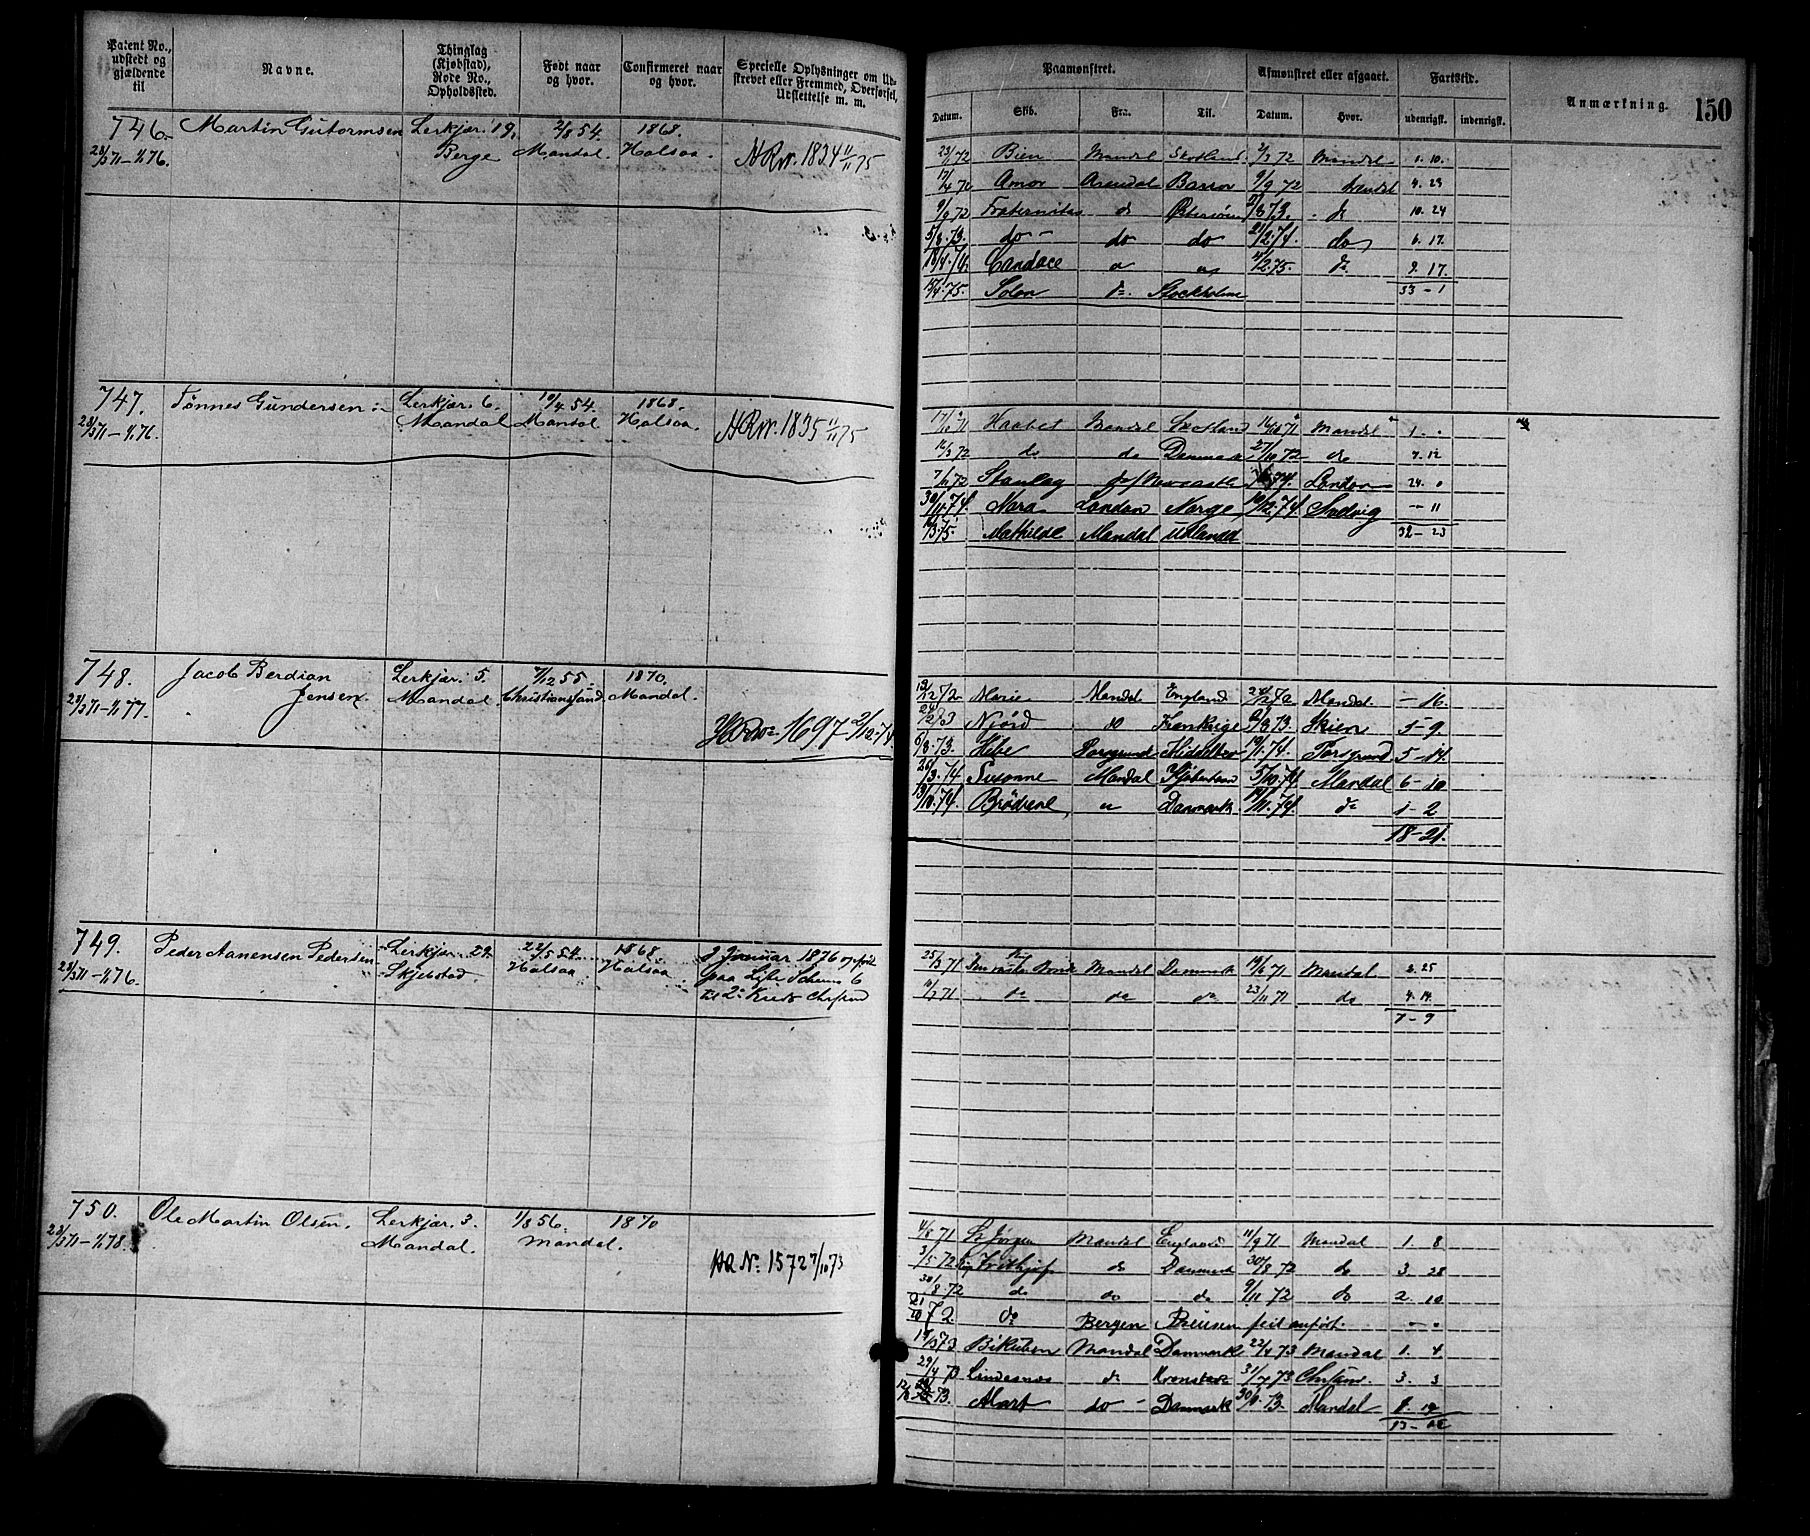 Patent No., udstedt og gjældende til
Navne.
Thinglag (Kjøbstad), Rode No., Opholdssted.
Født naar og hvor.
Confirmeret naar og hvor.
Specielle Oplysninger om Udskrevet eller Fremmed, Overførsel, Udslettelse m. m.
Paamønstret.
Afmønstret eller afgaaet.
Fartstid.
Anmærkning.
150
Datum.
Skib.
Fra.
Til.
Datum.
Hvor.
udenrigsk.
indenrigsk.
746. Martin Gutormsen Lerkjær. 19. 2/8 54. 1868.
23/3 71 – 1/1 76. Berge Mandal. Halsaa. 1834 11/11 75
23/1 72 Bien Mandal Skotland 72 Mandal 1. 10.
17/4 72 Amor Arendal 9/9 72 4. 23
9/9 72 Fraternitas do Østersøen 73. do 10. 24
5/8. 73. do do do 21/12. 74. do 6. 17.
Candace 75. do 9. 17.
75. Solon do. Stockholm 33 – 1
747. Tønnes Gundersen Lerkjær. 6. 10/4 54. 1868.
23/3 71 – 1/1 76. Mandal Mandal Halsaa. 1835 11/11 75
17/10 71 Haabet Mandal Skotland 71 Mandal 1. "
72 do do Danmark 27/10 72 do 7. 12
72 Newcastle 74. London 24. 0
30/11. 74. Nora London Norge 74 – 11
75 Mathilde Mandal Udlandet 32 – 23
748. Jacob Berdian Lerkjær. 5. 7/12 55. 1870.
Jensen.
23/3 71 – 1/1 77. Mandal Christianssand Mandal.
1697 – 2/12. 74
13/12 72 Marie Mandal England Mandal – 16
Njørd do Frankrige 73 Skien 5 – 9
6/8. 73. Hebe Porsgrund 19/1. 74. Porsgrund 5 – 14.
28/3. 74 Susanne Mandal 5/10. 74 Mandal 6 – 10
13/10. 74. Brødrene " Danmark 19/11. 74 do 1 – 2
18 – 21.
749. Peder Aanensen Pedersen Lerkjær. 29. 22/5 54. 1868. Januar 1876
23/3 71 – 1/1 76. Skjebstad. Halsaa Halsaa paa 6
til 2. Kreds
25/3 71 Mandal Danmark 19/6 71 Mandal 2. 25
71 do do do 23/11 71 do 4. 14.
7 – 9
750. Ole Martin Olsen. Lerkjær. 3. 1/8 56. 1870
23/3 71 – 1/1 78. Mandal. Mandal.
AR No. 1572 7/10 73
4/8 71 St Jørgen Mandal England 11/9 71 Mandal 1. 8
3/5 72 Frithjof do Danmark 30/8 72 do 3. 28
30/8. 72 do do do 9/11 72 do 2. 10
21/10 72. do Bergen Preusen feil anført. – "
19/3 73 Bikuben Mandal Danmark 22/4 73 Mandal 1. 4
29/4 73 Lindesnæs do Kronstadt 31/7 73 3. 3
73. do Danmark 30/9. 73. Mandal